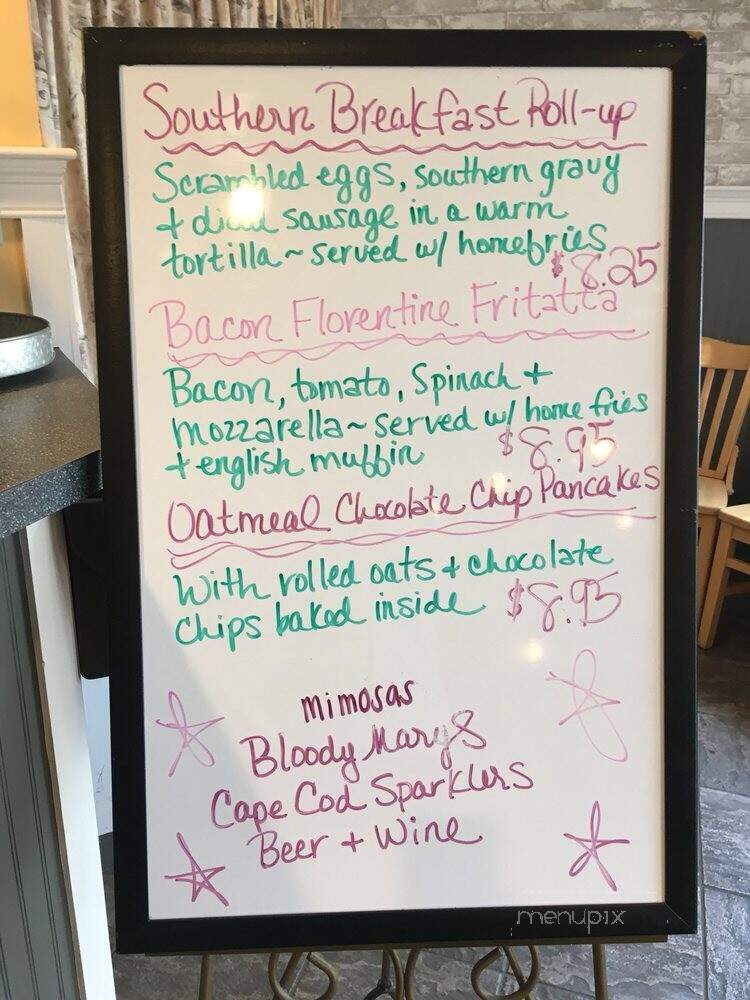 Southern Breakfast Roll-up
Scrambled eggs, southern gravy
+ diced sausage in a warm
tortilla ~ served w/ homefries
$8.25
Bacon Florentine Fritatta
Bacon, tomato, Spinach +
mozzarella ~ served w/ home fries
+ english muffin $8.95
Oatmeal Chocolate Chip Pancakes
With rolled oats + chocolate
chips baked inside $8.95
mimosas
Bloody Marys
Cape Cod Sparklers
Beer + Wine
menupix